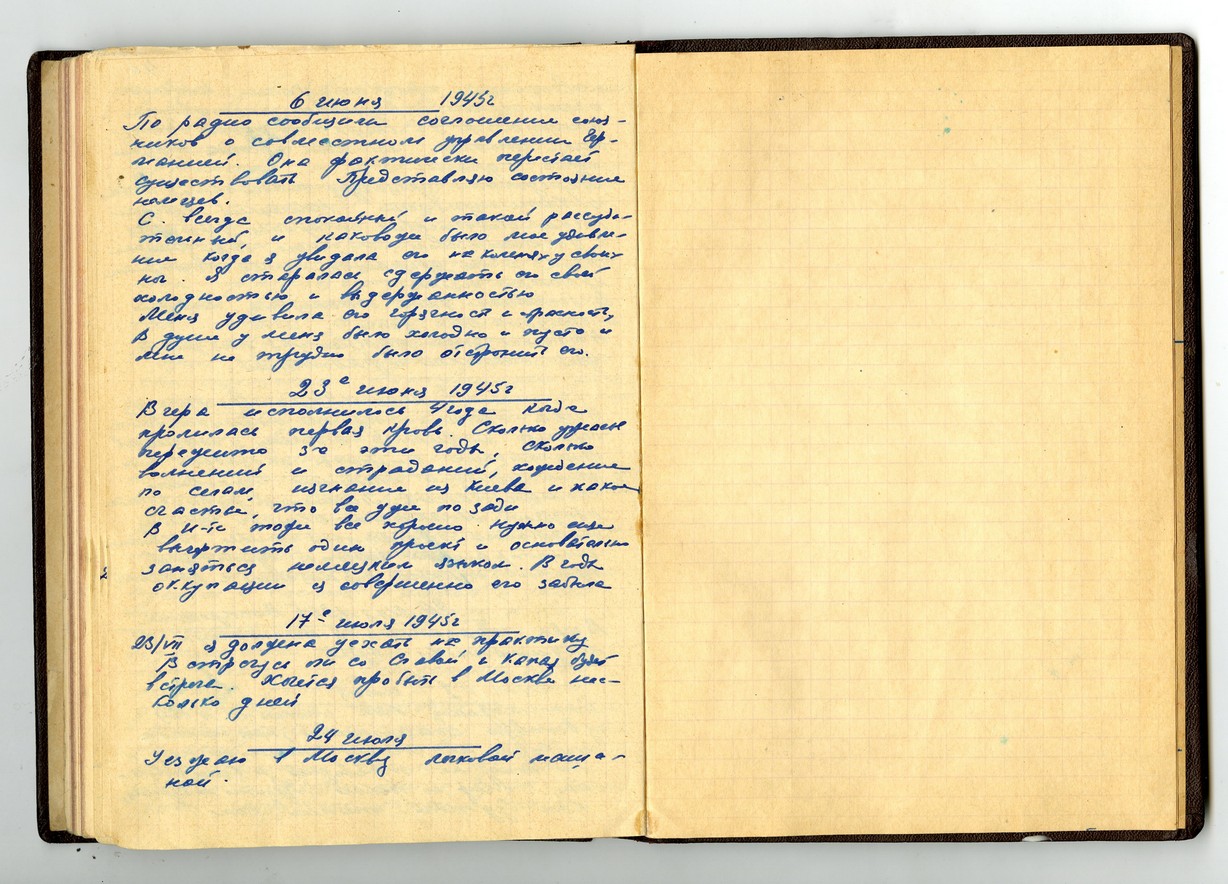 6 июня 1945г
По радио сообщили соглошение союз-
ников о совместном управлении Гер-
манией. Она фактически перестаёт
существовать Представляю состояние
немцев.
С. всегда спокойный и такой рассуди-
тельный, и каково же было мое удивле-
ние когда я увидала его на коленях у своих
ног. Я старалась сдержать его своей
холодностью и выдержанностью
Меня удивила его горячность и страстность,
В душе у меня было холодно и пусто и
мне не трудно было отстронить его.
23е июня 1945г
Вчера исполнилось 4 года когда
пролилась первая кровь. Сколько ужасов
пережито за эти годы, сколько
волнений и страданий, хождение
по селам, изгнание из Киева и какое
счастье, что все уже по зади
В и-те тоже все хорошо. Нужно еще
вычертить один проект и основательно
заняться немецким языком. В годы
оккупации я совершенно его забыла
17е июля 1945г
23/VII я должна уехать на практику
Встречусь ли со Славой, и какая будет
встреча. Хочется пробыть в Москве нес-
колько дней
24 июля
Уезжаю в Москву легковой маши-
ной.